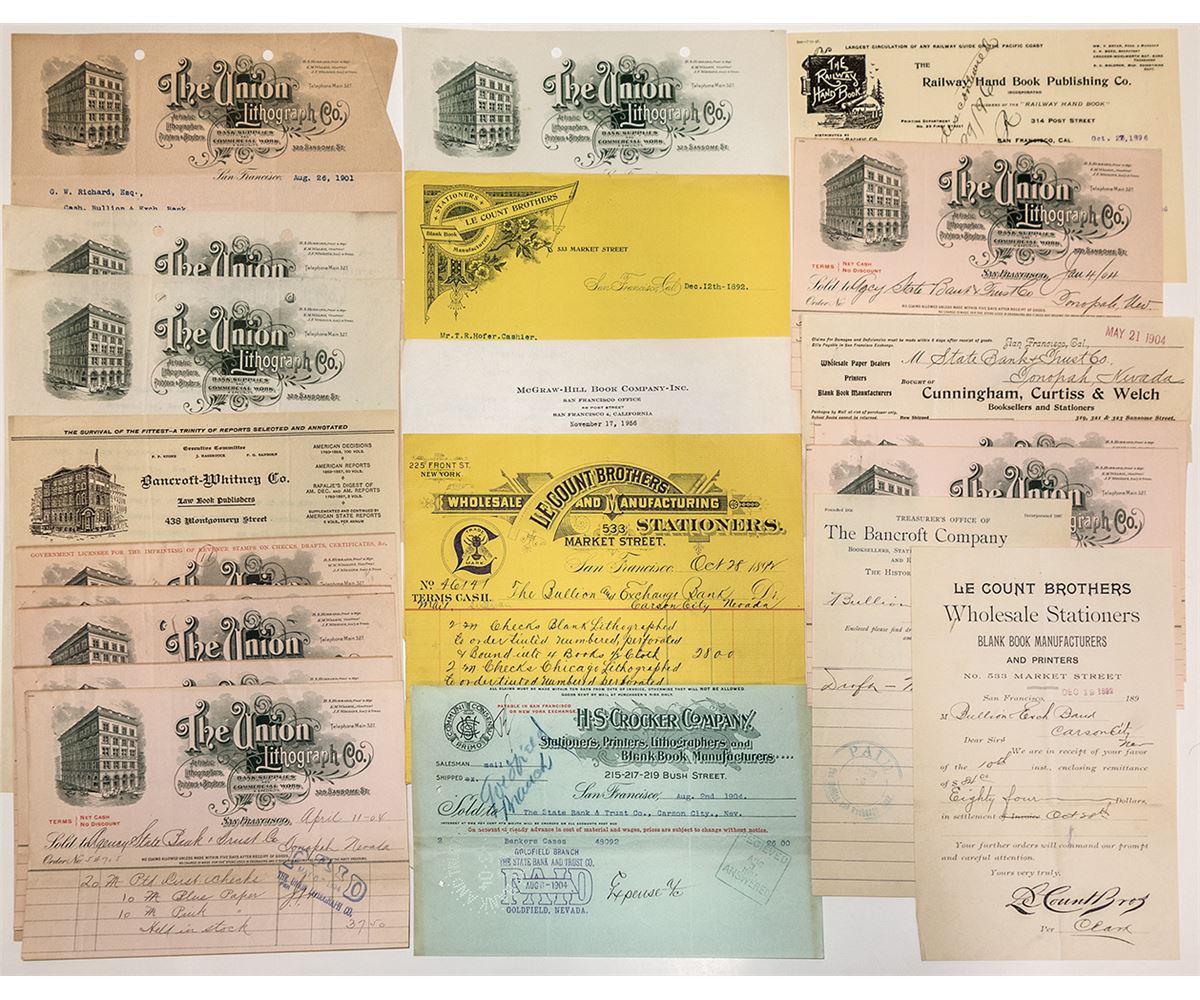 The Union
Lithograph Co.
Artistic
Lithographers,
Printers & Binders.
BANK SUPPLIES
AND
COMMERCIAL WORK.
325 SANSOME ST.
Telephone Main 327.
San Francisco, Aug. 26, 1901
G. W. Richard, Esq.,
Cash. Bullion & Exch. Bank
The Union
Telephone Main 327.
The Union
Lithograph Co.
Artistic
Lithographers,
Printers & Binders.
BANK SUPPLIES
AND
COMMERCIAL WORK.
325 SANSOME ST.
Telephone Main 327.
THE SURVIVAL OF THE FITTEST—A TRINITY OF REPORTS SELECTED AND ANNOTATED
Executive Committee
Bancroft-Whitney Co.
Law Book Publishers
438 Montgomery Street
AMERICAN DECISIONS
1760-1869, 100 VOLS.
AMERICAN REPORTS
1869-1887, 60 VOLS.
RAPALJE'S DIGEST OF
AM. DEC. AND AM. REPORTS
SUPPLEMENTED AND CONTINUED BY
AMERICAN STATE REPORTS
6 VOLS. PER ANNUM
GOVERNMENT LICENSEE FOR THE IMPRINTING OF REVENUE STAMPS ON CHECKS, DRAFTS, CERTIFICATES, &c.
The Union
The Union
Telephone Main 327.
The Union
Lithograph Co.
Artistic
Lithographers,
Printers & Binders.
BANK SUPPLIES
AND
COMMERCIAL WORK.
325 SANSOME ST.
Telephone Main 327.
TERMS NET CASH
NO DISCOUNT
SAN FRANCISCO, April 11-04
Sold to Agency State Bank & Trust Co
Order No Tonopah Nevada
NO CLAIMS ALLOWED UNLESS MADE WITHIN FIVE DAYS AFTER RECEIPT OF GOODS.
20 M Ptd Cust. Checks
10 M Blue Paper
10 M Pink "
Held in stock 37.50
THE UNION LITHOGRAPH CO.
The Union
Lithograph Co.
Artistic
Lithographers,
Printers & Binders.
BANK SUPPLIES
AND
COMMERCIAL WORK.
325 SANSOME ST.
Telephone Main 327.
STATIONERS
LE COUNT BROTHERS
Blank Book
Manufacturers
533 MARKET STREET
San Francisco, Cal. Dec.12th-1892.
Mr.T.R.Hofer.Cashier.
MCGRAW-HILL BOOK COMPANY-INC.
SAN FRANCISCO OFFICE
68 POST STREET
SAN FRANCISCO 4, CALIFORNIA
November 17, 1956
225 FRONT ST.
NEW YORK
LE COUNT BROTHERS
WHOLESALE AND MANUFACTURING
533 STATIONERS.
MARKET STREET.
TRADE
MARK
San Francisco, Oct 28 1892
No 46141
TERMS CASH.
The Bullion & Exchange Bank Dr
Carson City Nevada
2 M Checks Blank Lithographed
to order tinted numbered, perforated
& Bound into 4 Books ½ Cloth 28 00
2 M Checks Chicago Lithographed
to order tinted numbered perforated
ALL CLAIMS MUST BE MADE WITHIN TEN DAYS FROM DATE OF INVOICE, OTHERWISE THEY WILL NOT BE ALLOWED.
PAYABLE IN SAN FRANCISCO
OR NEW YORK EXCHANGE
H·S·CROCKER COMPANY.
Stationers, Printers, Lithographers and
Blank Book Manufacturers
215-217-219 BUSH STREET.
SALESMAN mail
SHIPPED ex.
Goldfield
Branch
San Francisco, Aug. 2nd 1904.
Sold to The State Bank & Trust Co., Carson City, Nev.
On account of steady advance in cost of material and wages, prices are subject to change without notice.
2 Bankers Cases 48092 26 00
GOLDFIELD BRANCH
THE STATE BANK AND TRUST CO.
PAID
AUG 8-1904
GOLDFIELD, NEVADA.
Expense
RECEIVED
AUG
ANSWERED
LARGEST CIRCULATION OF ANY RAILWAY GUIDE ON THE PACIFIC COAST
THE
RAILWAY
HAND BOOK
THE
Railway Hand Book Publishing Co.
INCORPORATED
PUBLISHERS OF THE "RAILWAY HAND BOOK"
314 POST STREET
SAN FRANCISCO, CAL. Oct. 1896
PRINTING DEPARTMENT
The Union
Lithograph Co.
Artistic
Lithographers,
Printers & Binders.
BANK SUPPLIES
AND
COMMERCIAL WORK.
325 SANSOME ST.
Telephone Main 327.
TERMS NET CASH
NO DISCOUNT
SAN FRANCISCO, Jan 4/04
Sold to Agcy State Bank & Trust Co
Order No Tonopah, Nev
NO CLAIMS ALLOWED UNLESS MADE WITHIN FIVE DAYS AFTER RECEIPT OF GOODS.
Claims for Damages and Deficiencies must be made within 5 days after receipt of goods.
Bills Payable in San Francisco Exchange.
San Francisco, Cal., MAY 21 1904
Wholesale Paper Dealers
Printers
Blank Book Manufacturers
M State Bank & Trust Co.
Tonopah Nevada
BOUGHT OF
Cunningham, Curtiss & Welch
Booksellers and Stationers
319, 321 & 323 Sansome Street.
The Union
Lithograph Co.
TREASURER'S OFFICE OF
The Bancroft Company
THE HISTOR
Bullion
Enclosed please find
PAID
LE COUNT BROTHERS
Wholesale Stationers
BLANK BOOK MANUFACTURERS
AND PRINTERS
No. 533 MARKET STREET
San Francisco, DEC 12 1892 189
M Bullion & Exch Bank
Carson City
Nev
Dear Sir
We are in receipt of your favor
of the 10th inst., enclosing remittance
of $84.00
Eighty four Dollars,
in settlement of Invoice Oct 28th
Your further orders will command our prompt
and careful attention.
Yours very truly,
Le Count Bros
Per Clark